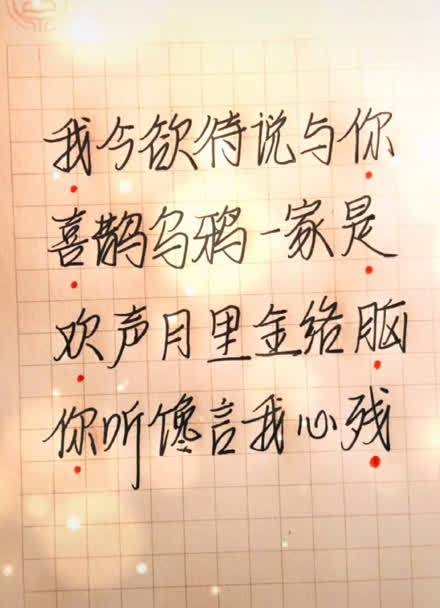 我今欲待说与你
喜鹊乌鸦一家是
欢声月里金络脑
你听馋言我心残